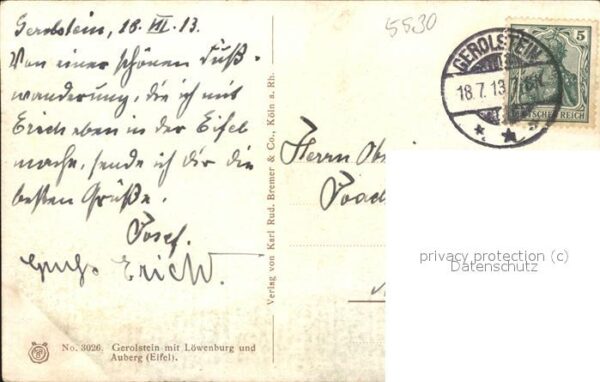 Gerolstein, 18. VII. 13.
Von einer schönen Fuß-
wanderung, die ich mit
Erich eben in der Eifel
mache, sende ich dir die
besten Grüße.
Josef.
Erich.
5530
GEROLSTEIN
18.7.13
5
DEUTSCHES REICH
Herrn
Verlag von Karl Rud. Bremer & Co., Köln a. Rh.
privacy protection (c)
Datenschutz
No. 3026. Gerolstein mit Löwenburg und
Auberg (Eifel).